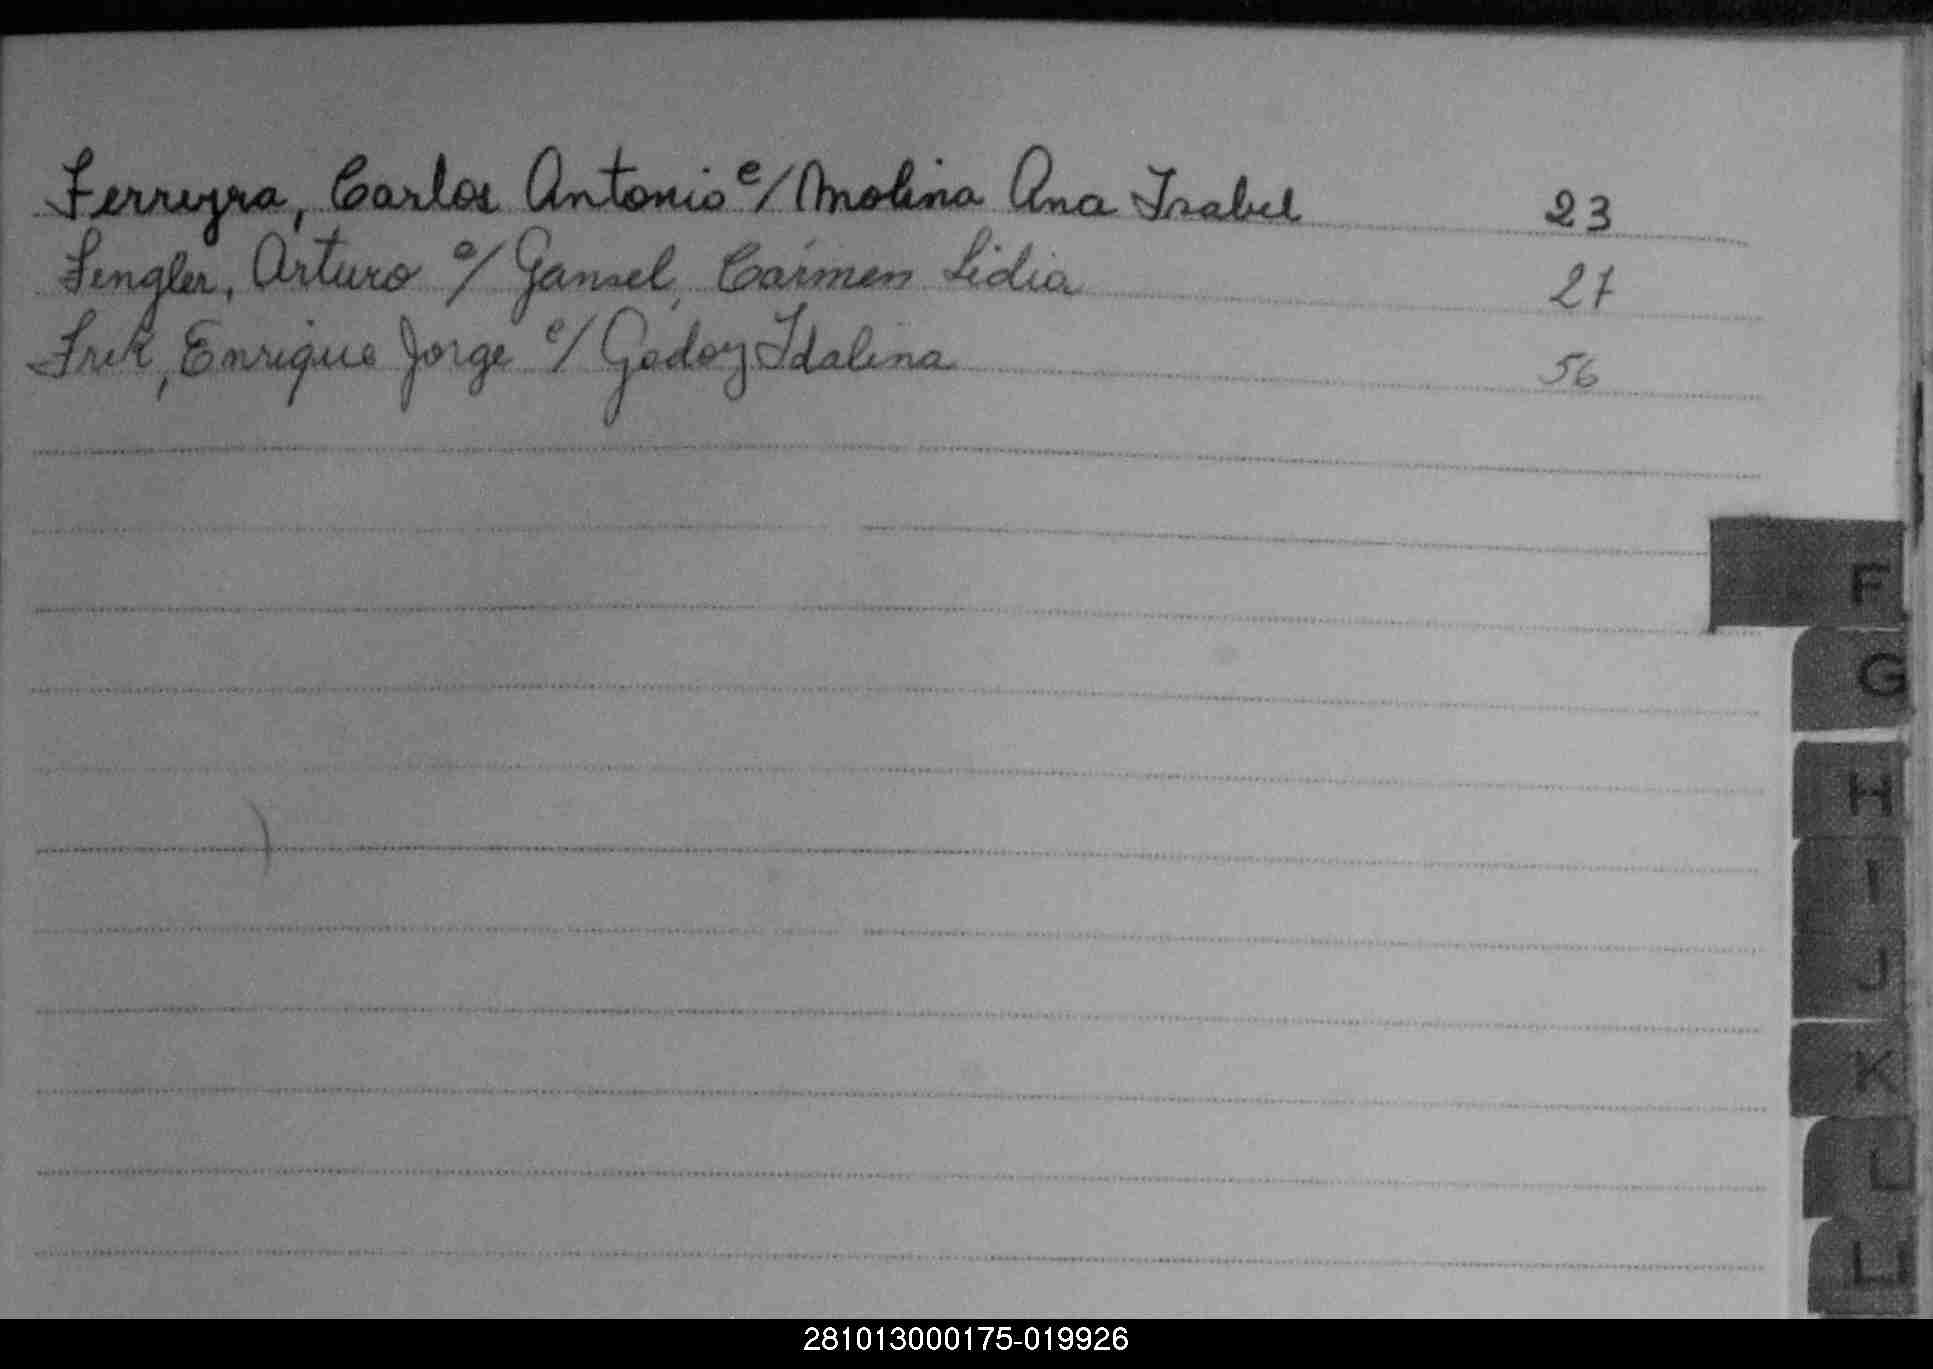 Ferreyra, Carlos Antonio c/ Molina Ana Isabel 23
Fengler, Arturo c/ Gansel, Carmen Lidia 27
Frik, Enrique Jorge c/ Godoy Idalina 56
F
G
H
I
J
K
L
LL
281013000175-019926